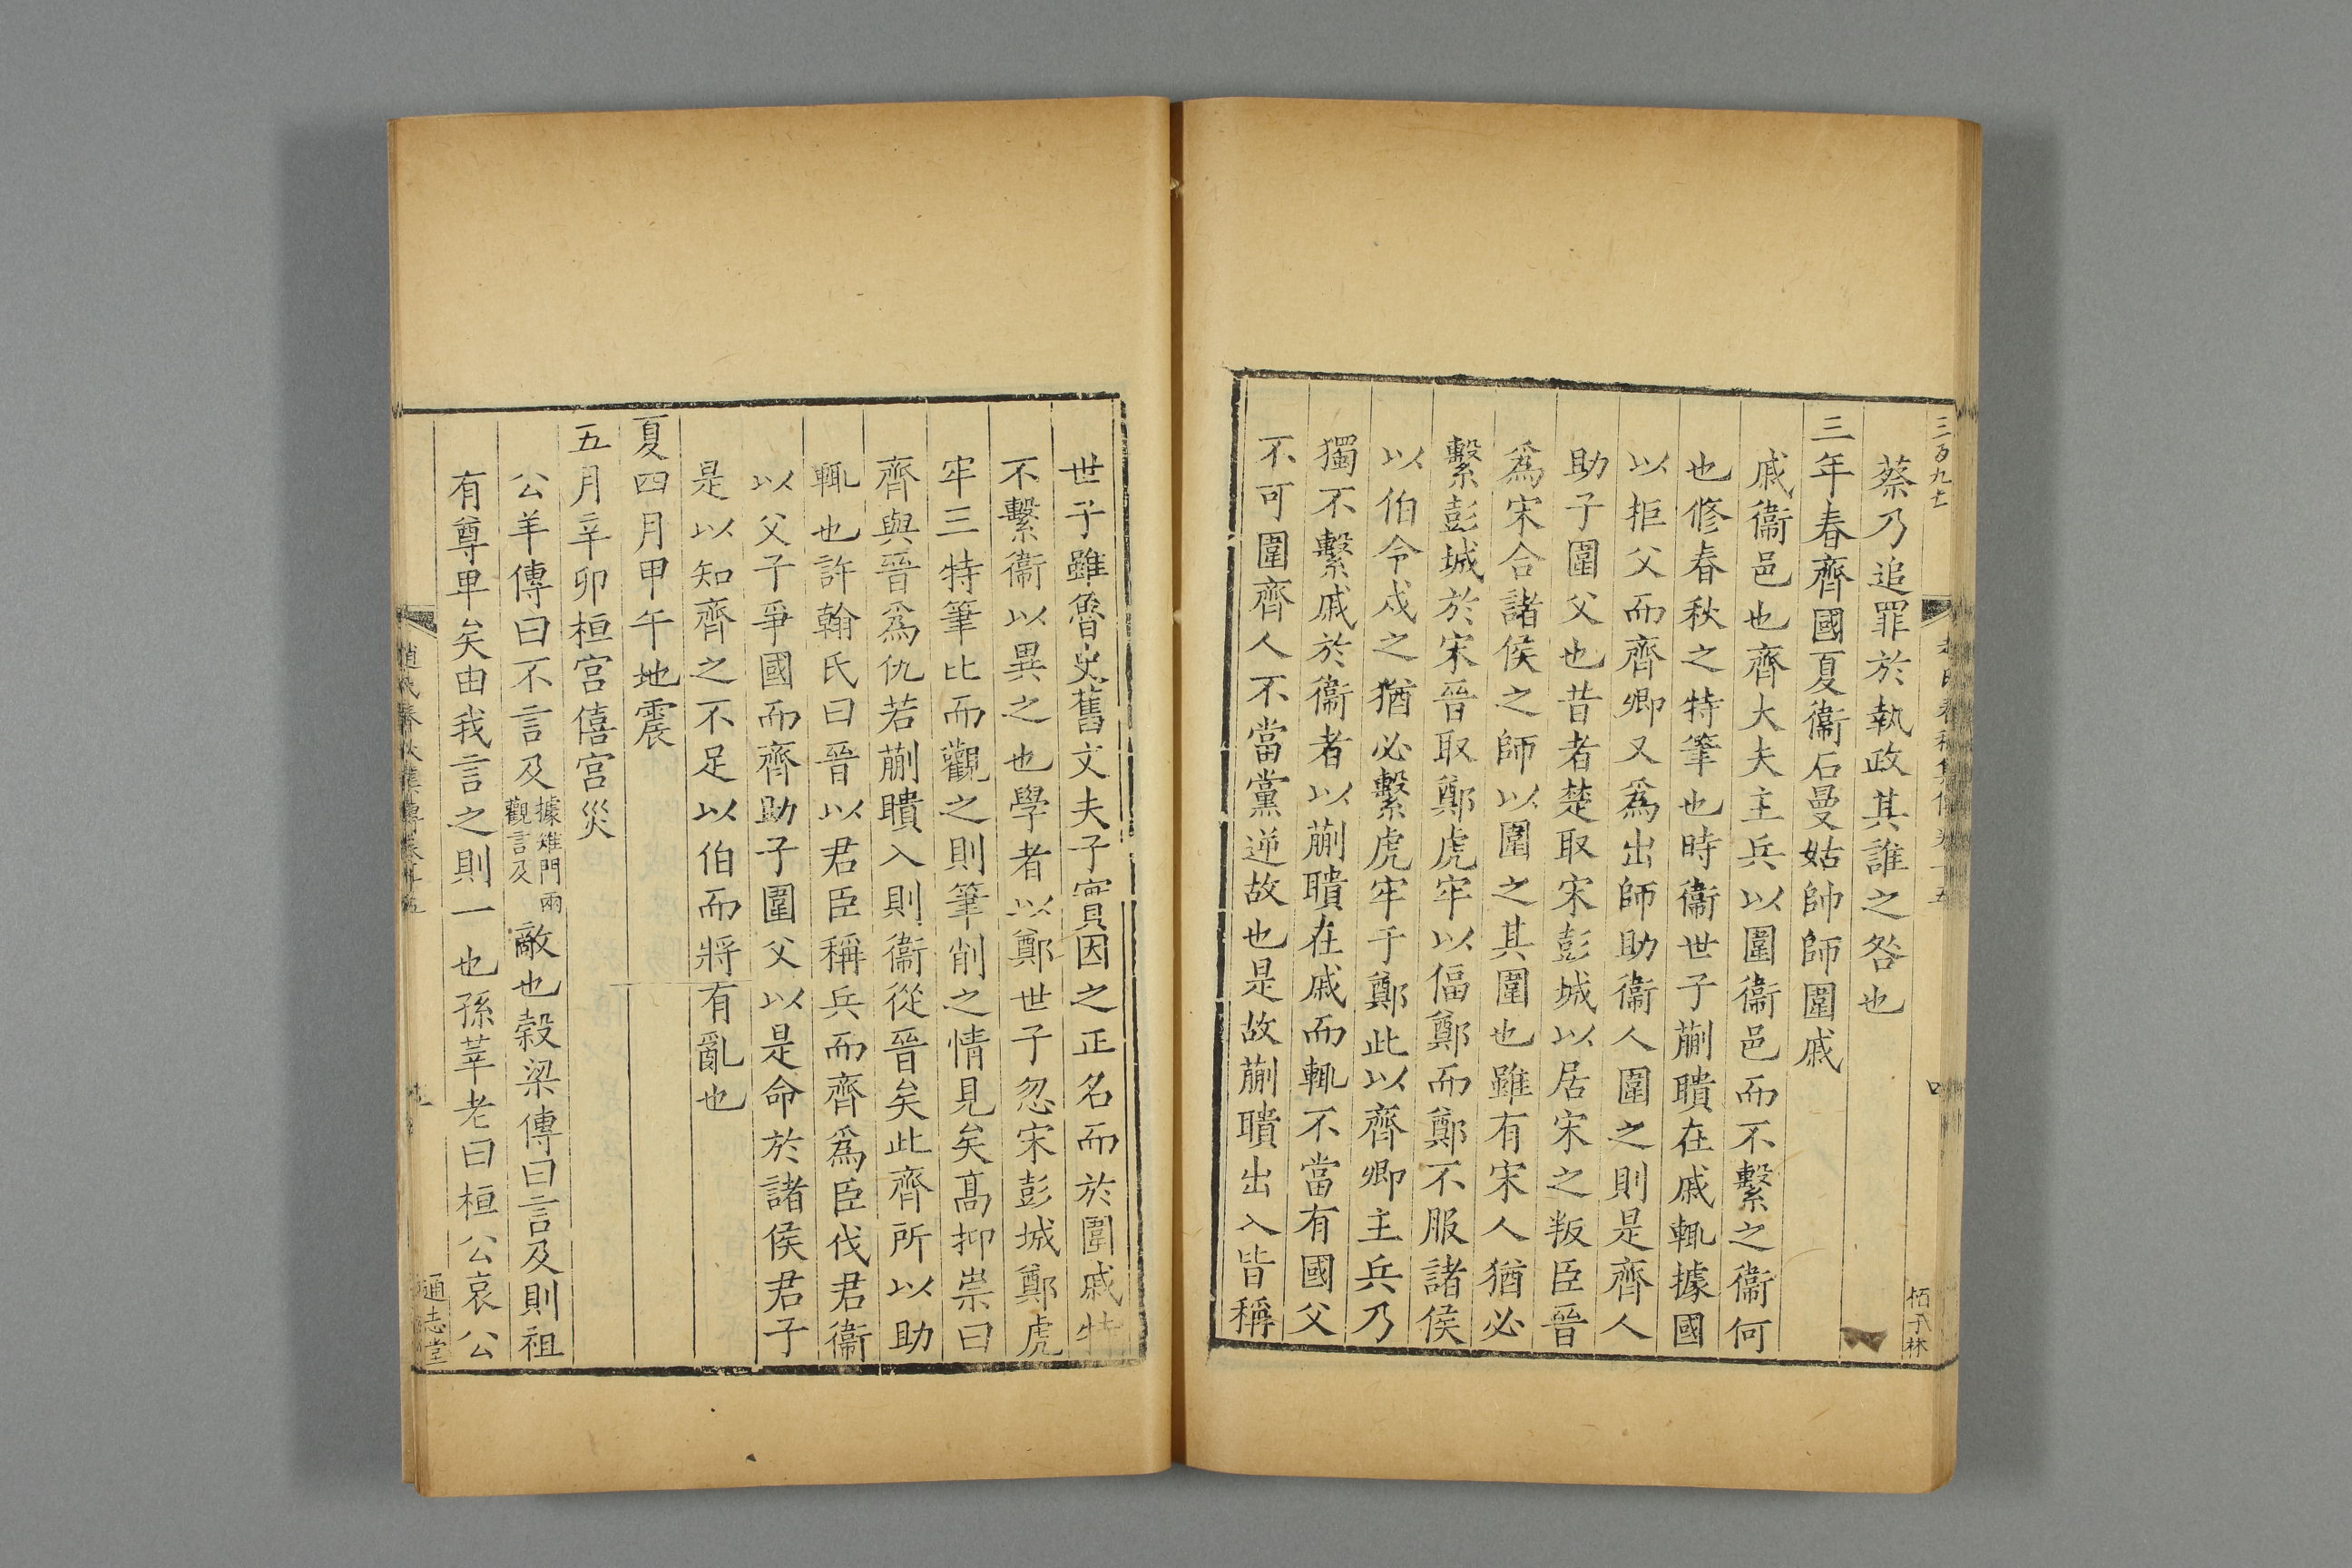 三百九十
蔡乃追罪於執政其誰之咎也
三年春齊國夏衞石曼姑帥師圍戚
戚衞邑也齊大夫主兵以圍衞邑而不繫之衞何
也修春秋之特筆也時衞世子蒯聵在戚輒據國
以拒父而齊卿又爲出師助衞人圍之則是齊人
助子圍父也昔者楚取宋彭城以居宋之叛臣晉
爲宋合諸侯之師以圍之其圍也雖有宋人猶必
繫彭城於宋晉取鄭虎牢以偪鄭而鄭不服諸侯
以伯令戍之猶必繫虎牢于鄭此以齊卿主兵乃
獨不繫戚於衞者以蒯聵在戚而輒不當有國父
不可圍齊人不當黨逆故也是故蒯聵出入皆稱
世子雖魯史舊文夫子實因之正名而於圍戚特
不繫衞以異之也學者以鄭世子忽宋彭城鄭虎
牢三特筆比而觀之則筆削之情見矣高抑崇曰
齊與晉爲仇若蒯聵入則衞從晉矣此齊所以助
輒也許翰氏曰晉以君臣稱兵而齊爲臣伐君衞
以父子爭國而齊助子圍父以是命於諸侯君子
是以知齊之不足以伯而將有亂也
夏四月甲午地震
五月辛卯桓宮僖宮災
公羊傳曰不言及據雉門兩觀言及敵也穀梁傳曰言及則祖
有尊卑矣由我言之則一也孫莘老曰桓公哀公
通志堂